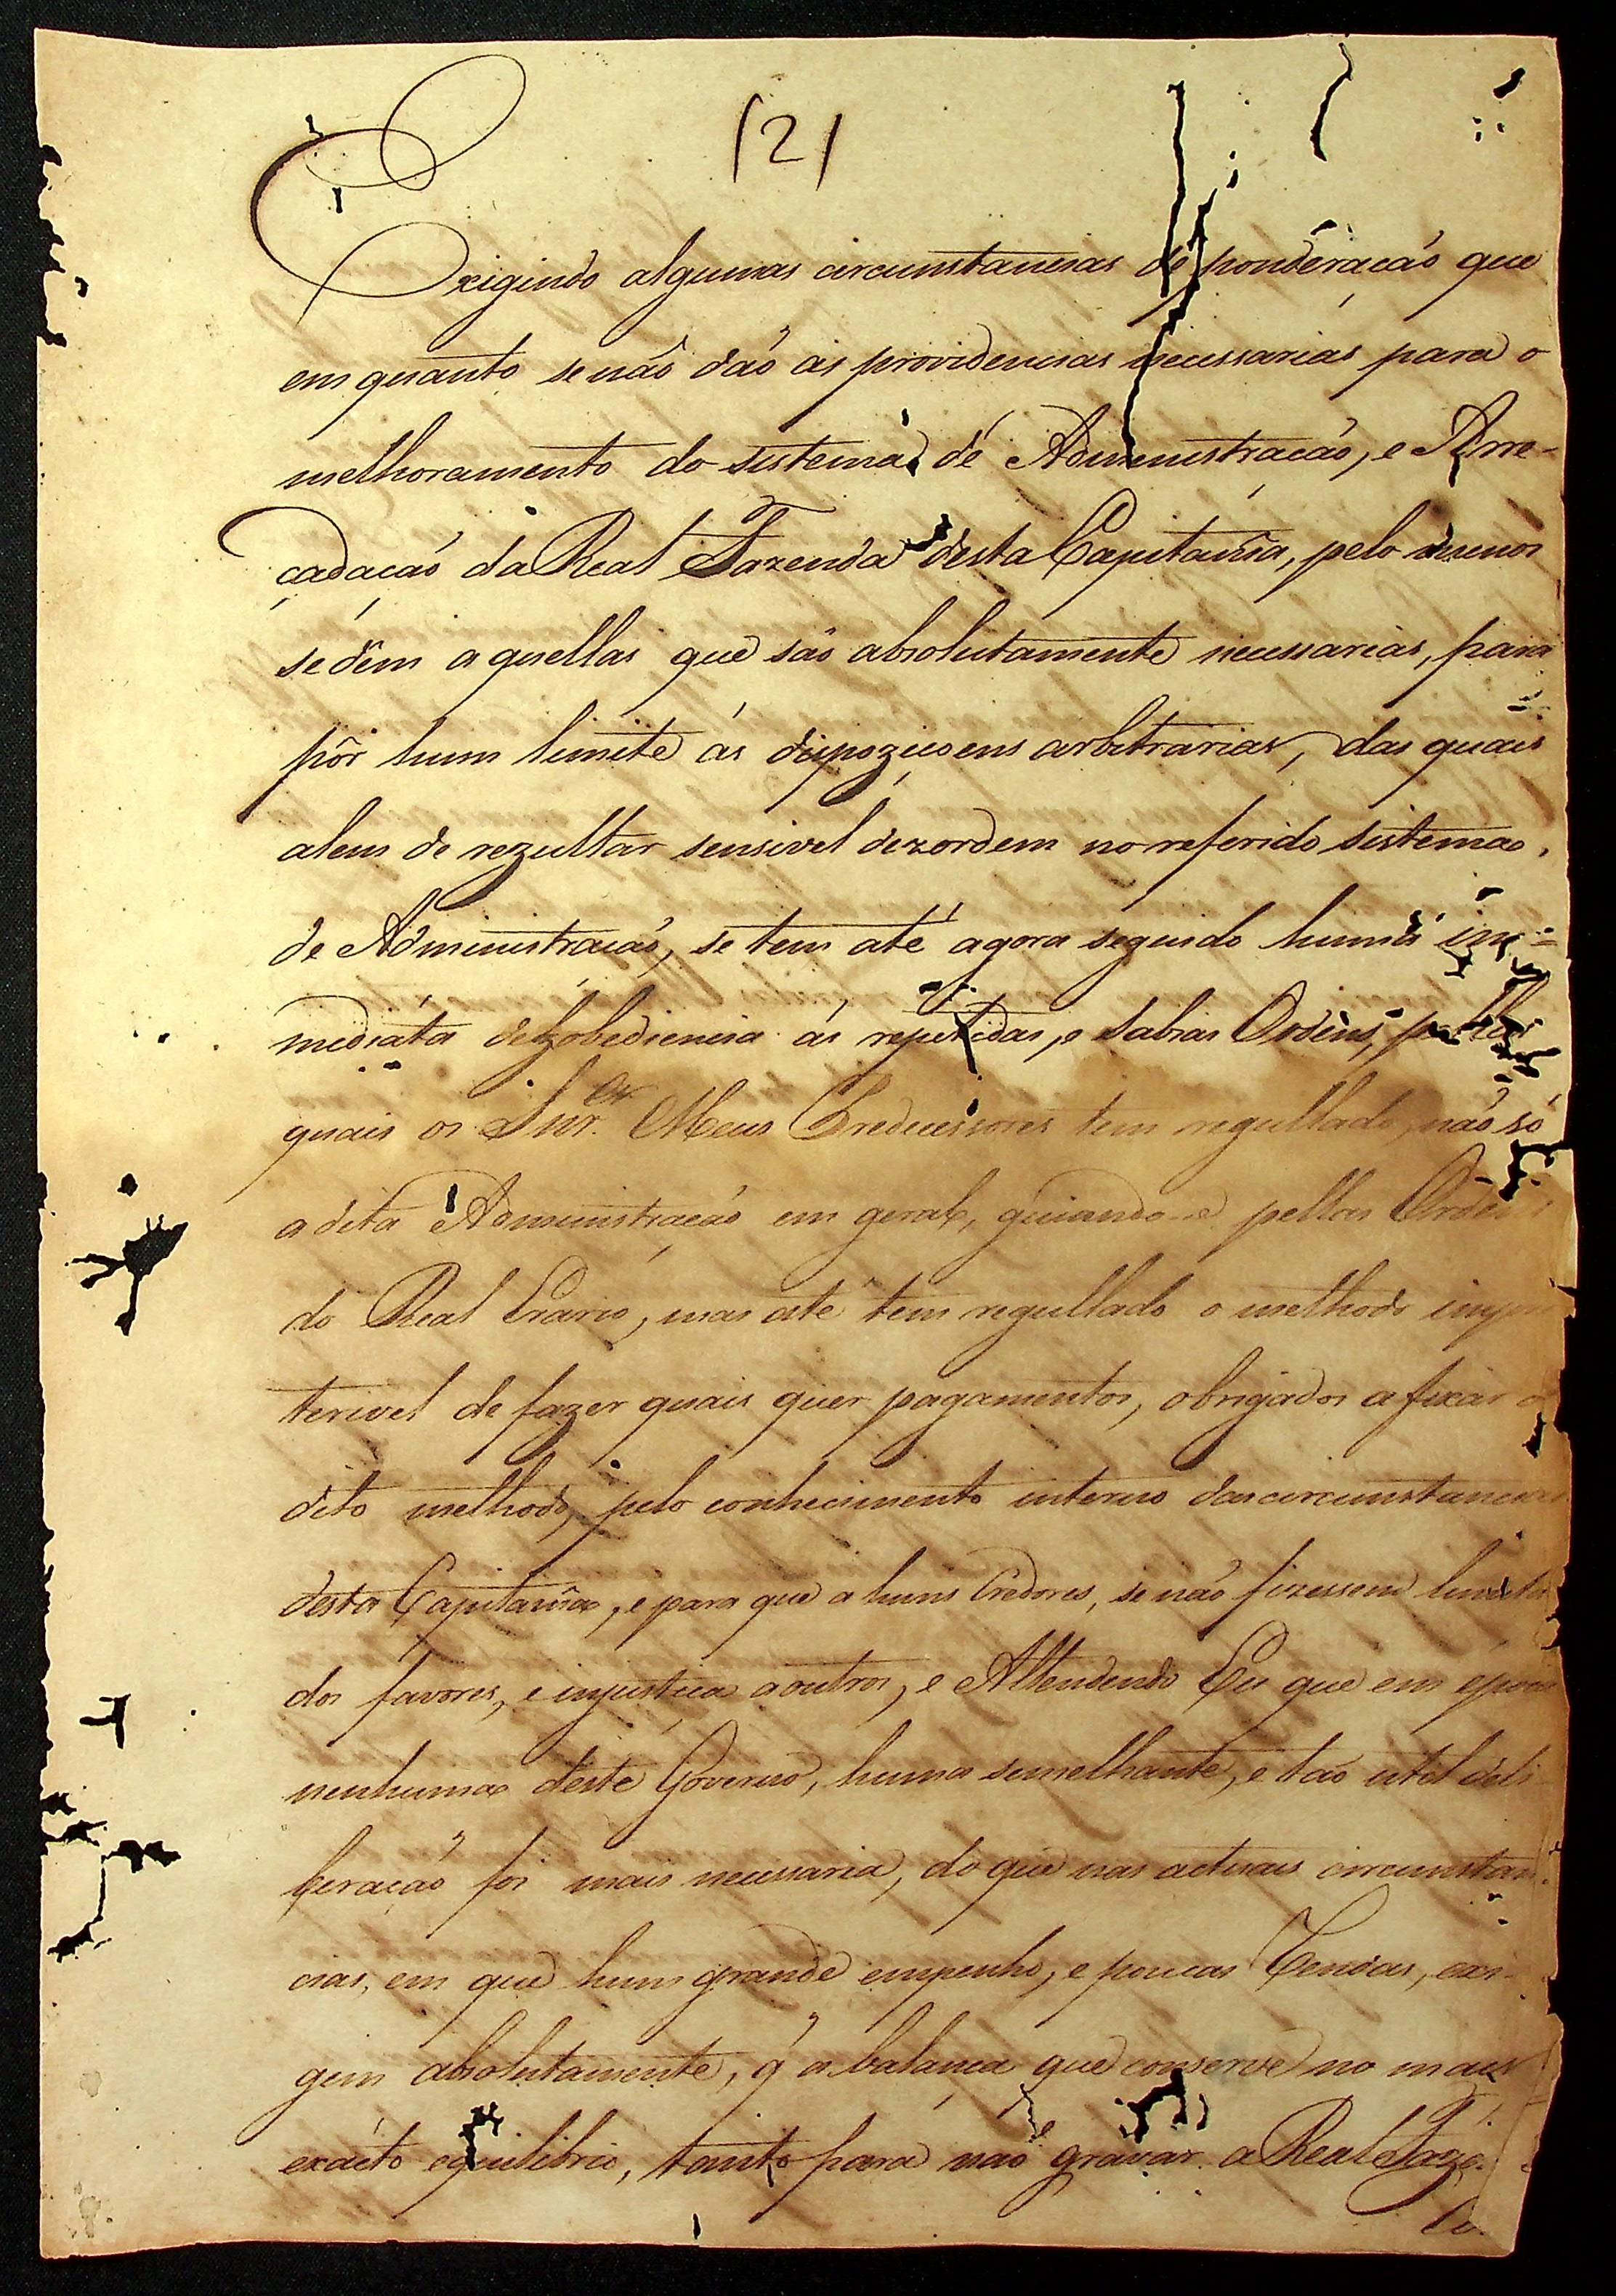 (2)
Exigindo algumas circumstancias de ponderação que
em quanto se não dão as providencias necessarias para o
melhoramento do sistema de Administração, e Arre-
cadação da Real Fazenda desta Capitanîa, pelo menos
se dêm aquellas que são absolutamente necessarias, para
pôr hum limite ás dispoziçoens arbitrarias, das quais
alem de rezultar sensivel dezordem no referido sistema
de Administração, se tem até agora seguido huma im=
mediata dezobediencia ás repetidas, e Sabias Ordens, pellas
quais os Snr.es Meus Predecessores tem regullado, não só
a dita Administração em geral, guiando-se pellas Ordens
do Real Erario, mas até tem regullado o methodo
terivel de fazer quais quer pagamentos, obrigados a fixar o
dito methodo, pelo conhecimento interno das circumstancias
desta Capitanîa, e para que a huns Credores, se não fizessem
dos favores, e injustiça a outros, e Attendendo Eu que em epoca
nenhuma deste Governo, huma semelhante, e tão util deli
beração foi mais necessaria, do que nas actuais circumstan-
cias, em que hum grande empenho, e poucas Rendas, exi-
gem absolutamente, q̃ a balança que conserve no mais
exácto equilibrio, tanto para não gravar a Real Faz.
Co-